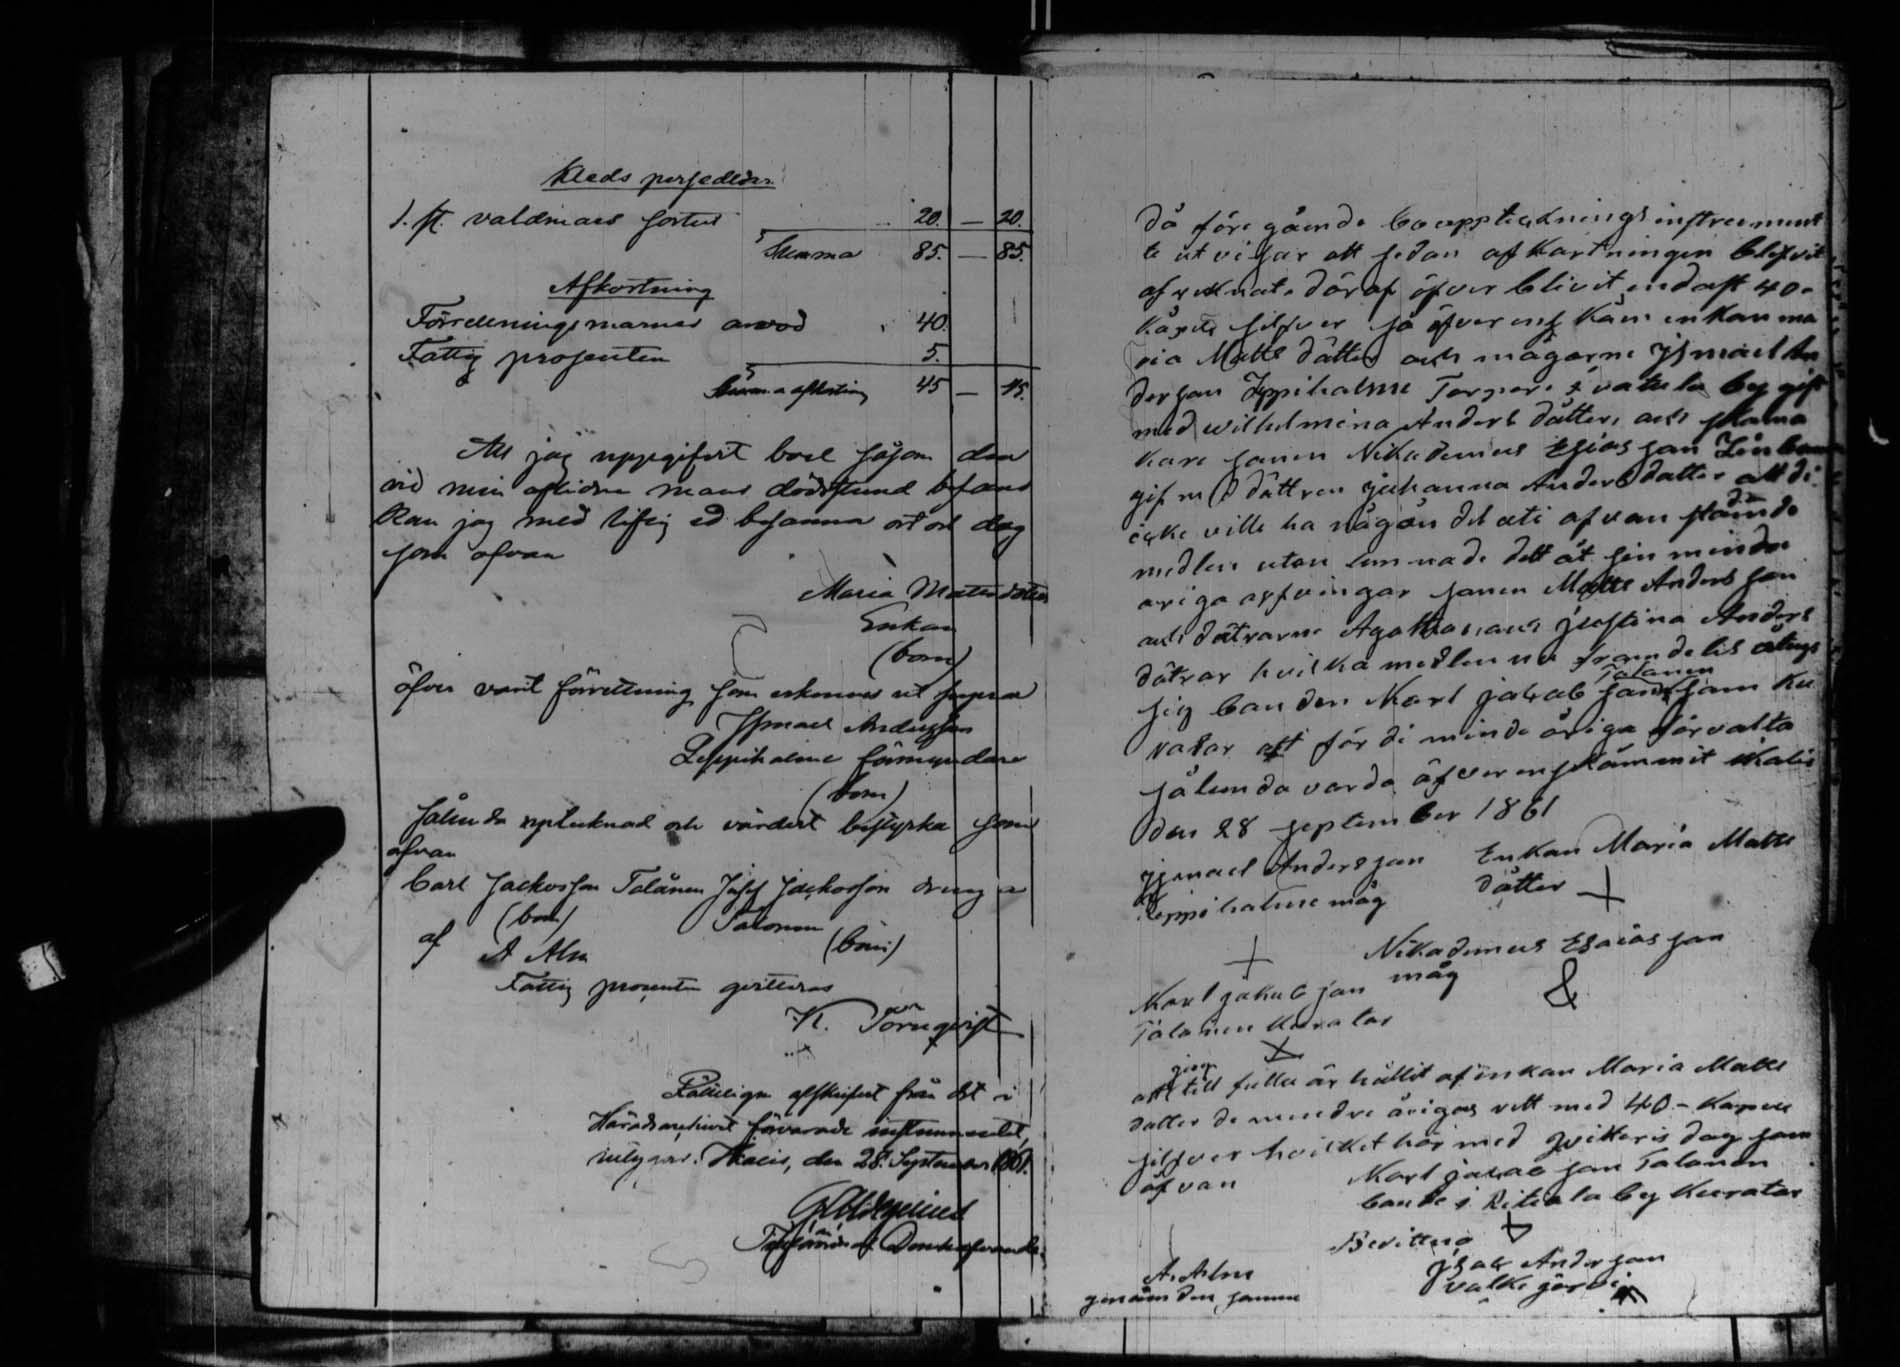 Kleds persedlar
1. st. valdmars kortus 20. — 20.
Summa 85. — 85.
Afkortning
Förrettningsmannes arvod 40.
Fattig prosenten 5.
Summa afkortning 45 — 45.
Att jag uppgifvit boet såsom den
vid min aflidne mans dödsstund befans
kan jag med liflig ed besanna ort och dag
som ofvan
Maria Mattsdotter
Enkan
(bom)
öfver varit förrettning som erkennes
Ismael Andersson
Leppihalme förmyndare
(bom)
sålunda uptecknad och vãrdert bestyrka som
ofvan
Carl Jackosson Talånen Jusif Jackosson dreng
(bom) Talonen
af A Alm (bom)
Fattig prosenten qvitteras
K. Törnqvist
Rätteligen afskrifvet från det i
Häradsarkivet förvarade instrumentet,
intygar: Ikalis, den 28. September 1861.
då före gående bouppteckningsinstrument
te utvisar att sedan afkortningen blifvit
afreknat, däraf öfver blivit endast 40-
kåpek silfver så öfverens kåm enkan ma
ria Matts dåtter och mågarne Ismael An
dersson Leppihalme Torpare i vatula by gift
med wilhelmina Anders dåtter, och
kare sonen Nikademus Esias son
gif med dåttren juhanna Anders datter att di
icke ville ha någån del uti afvan stående
medlen utan lemnade dett åt sin mindre
ariga arfvingar sånen Matts Anders son
och dåtrarne Agatha och justina Anders
dåtrar hvilka medlen nu
sig banden Karl jakab son Talånen som ku
ratar att för di minde åriga förvalta
sålunda varda åfverenskåmmit Ikalis
den 28 september 1861
jsmael Andersson Enkan Maria Matts
Leppihalme måg dåtter
Nikademus Esaias son
måg
Karl jakab son
Talånen kuratar
att till fulla är hållit af enkan Maria Matts
datter de mindre årigas rett med 40- kapek
silfver hvilket här med qvitteris dag som
åfvan Karl jakab son Talanen
bande i Riteala by kuratar
Bevittna
A. Alm Isak Andersson
genåm den samme valkejärvi